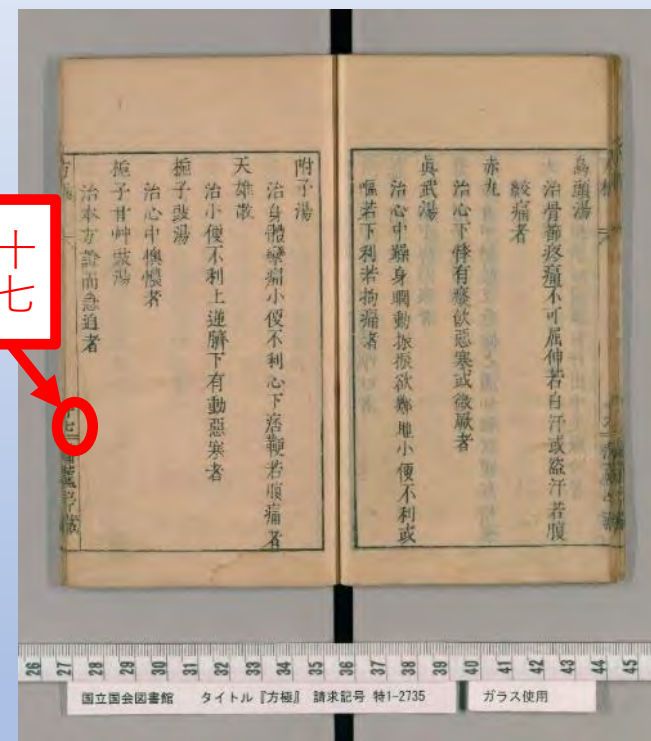 烏頭湯
治骨節疼痛不可屈伸若自汗或盗汗若腹
絞痛者
赤丸
治心下悸有痰飮惡寒或微厥者
眞武湯
治心中躁身瞤動振振欲擗地小便不利或
嘔若下利若拘痛者
附子湯
治身體攣痛小便不利心下痞鞕若腹痛者
天雄散
治小便不利上逆臍下有動惡寒者
梔子豉湯
治心中懊憹者
梔子甘艸豉湯
治本方證而急迫者
十七
十七
26 27 28 29 30 31 32 33 34 35 36 37 38 39 40 41 42 43 44 45
国立国会図書館 タイトル『方極』 請求記号 特1-2735 ガラス使用